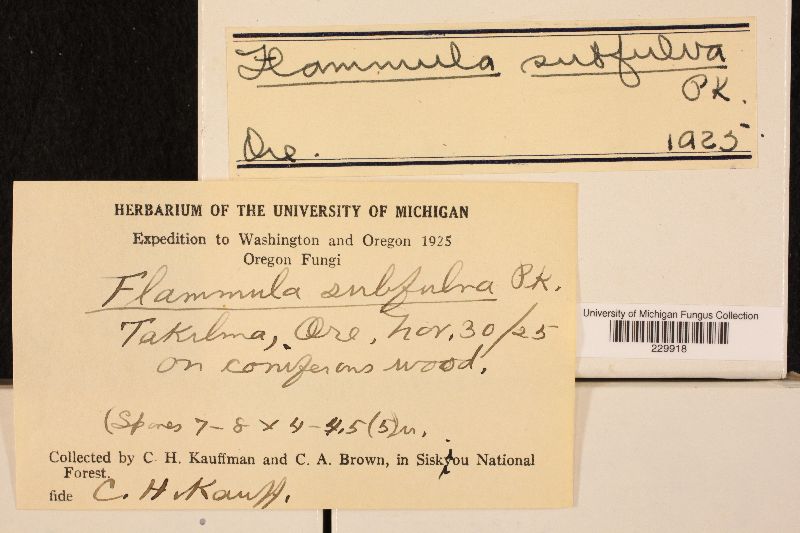 Flammula subfulva
PK.
Ore. 1925.
HERBARIUM OF THE UNIVERSITY OF MICHIGAN
Expedition to Washington and Oregon 1925
Oregon Fungi
Flammula subfulva PK.
Takilma, Ore, Nov. 30/25
on coniferous wood.
(Spores 7-8 x 4-4.5(5)u.
Collected by C. H. Kauffman and C. A. Brown, in Siskiyou National
Forest.
fide C. H. Kauff.
University of Michigan Fungus Collection
229918